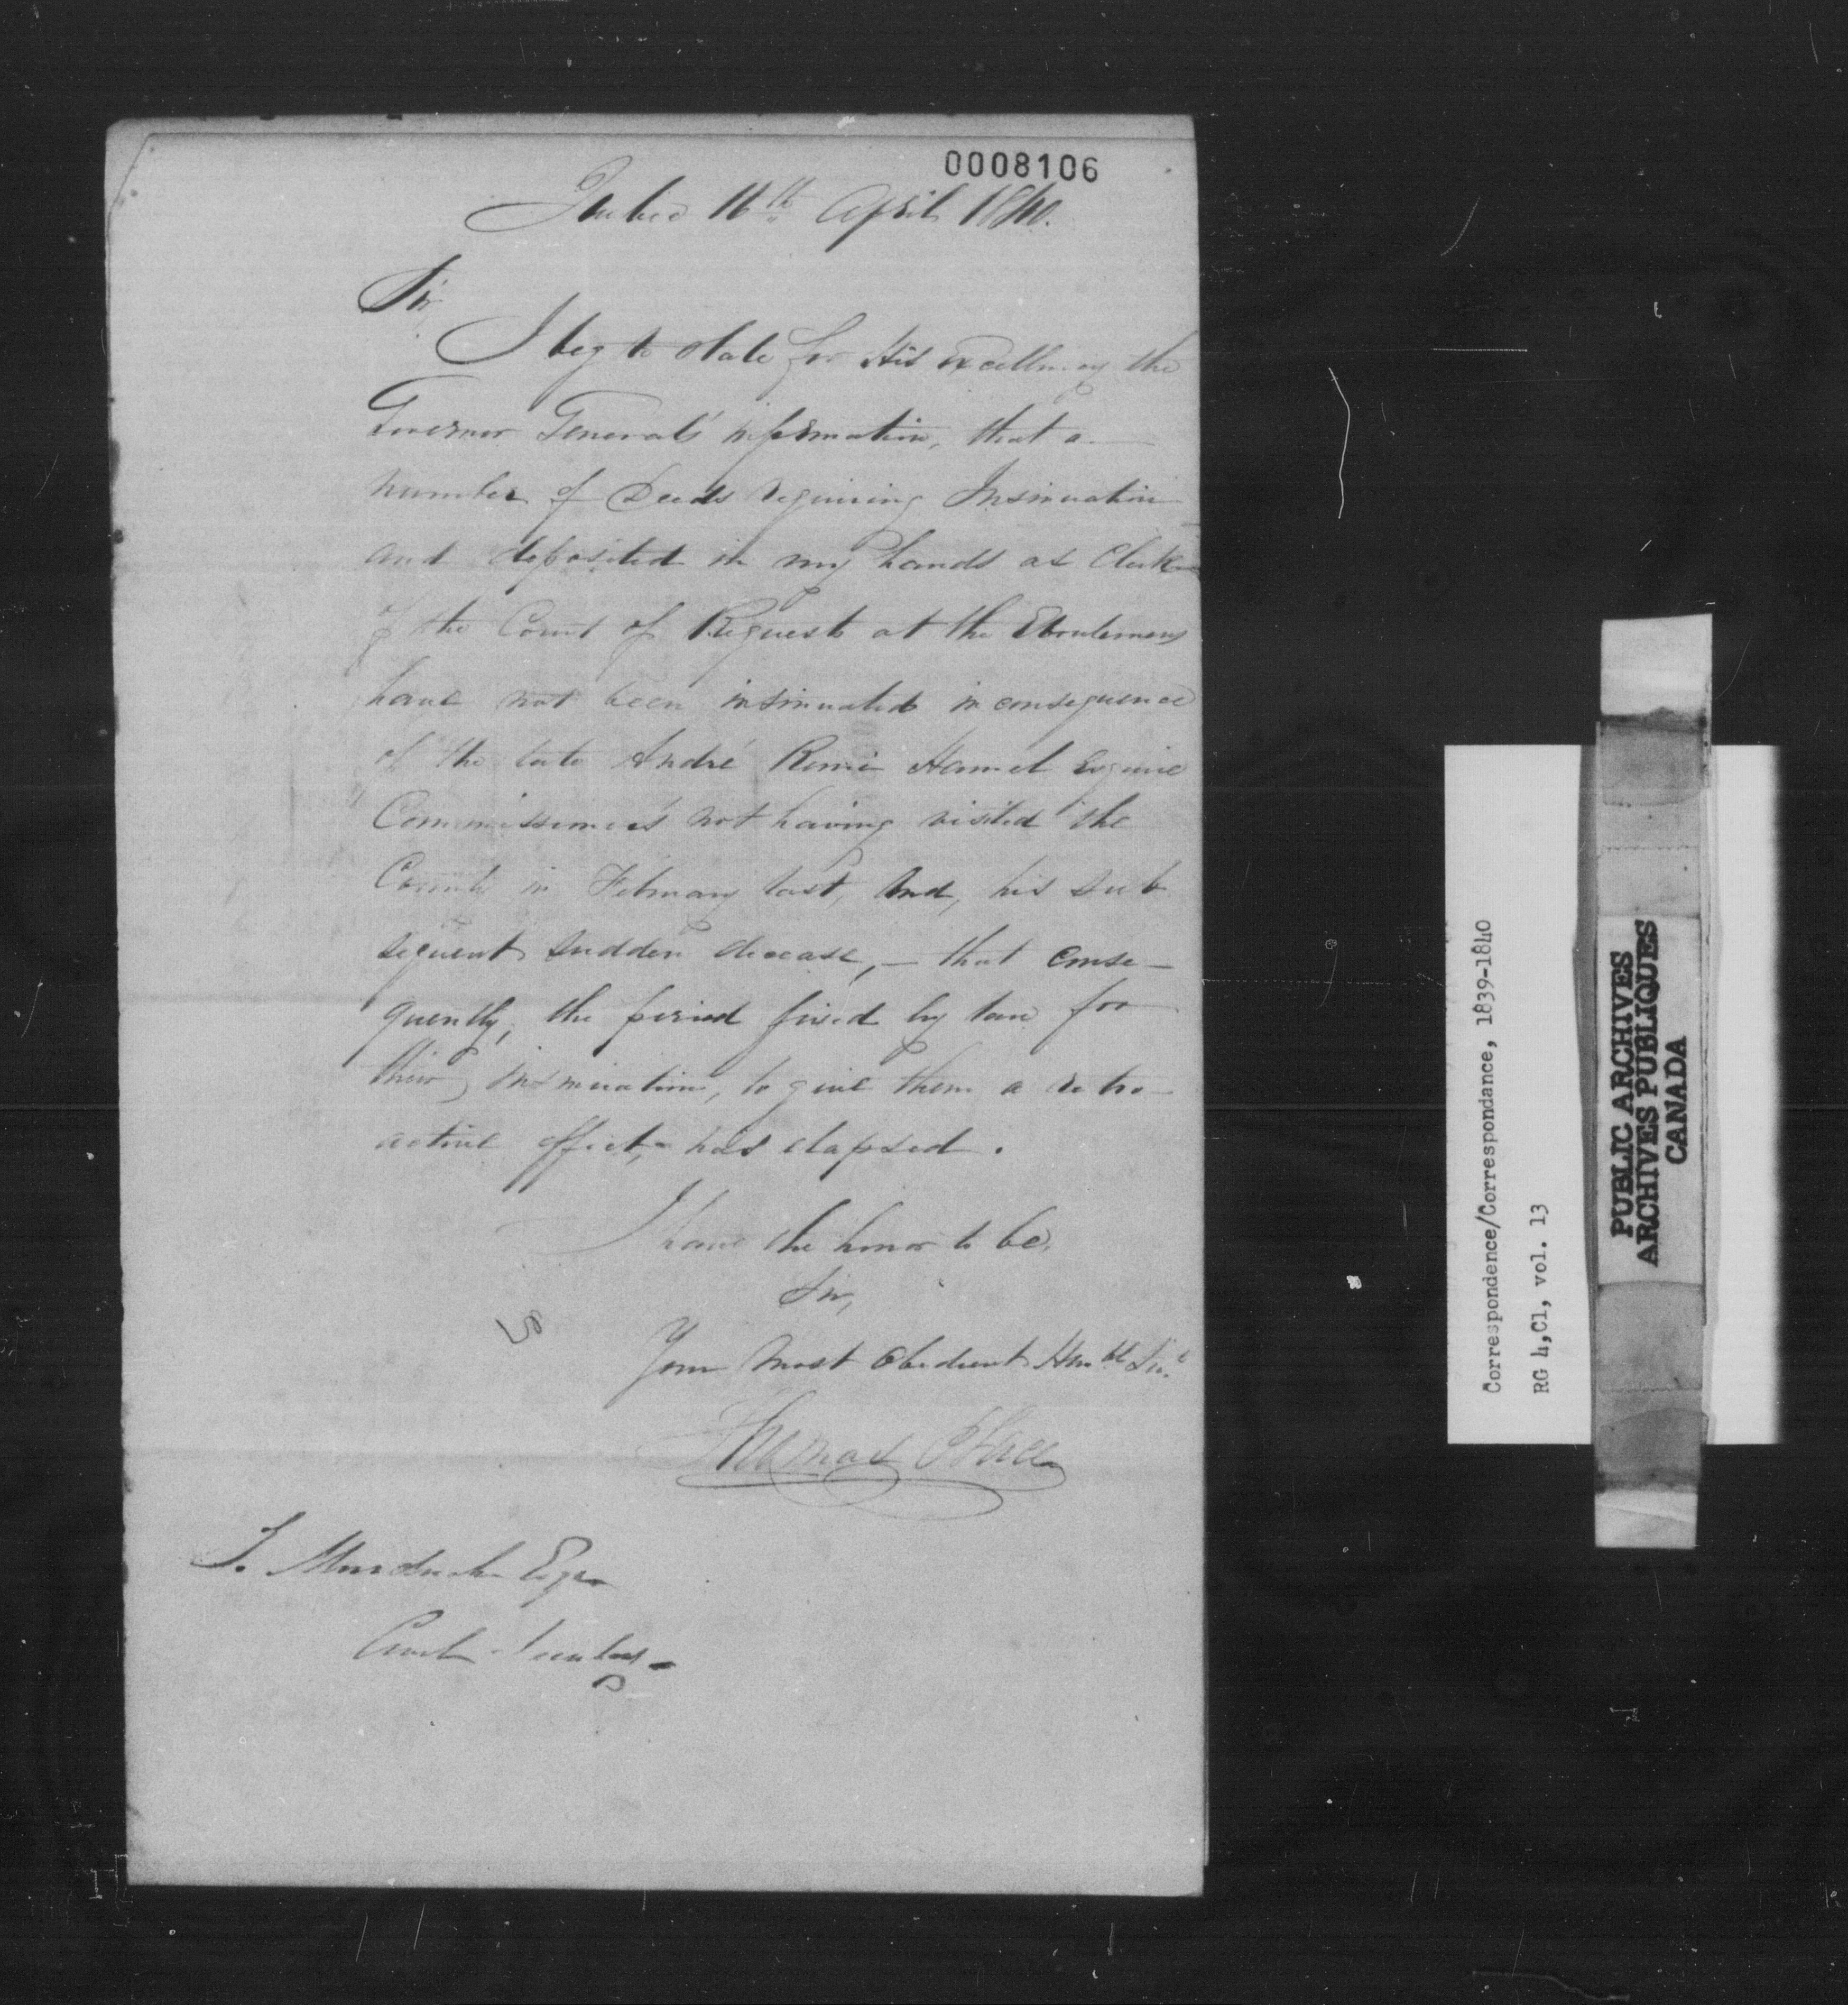 0008106
Quebec 16th April 1840.
Sir
I beg to state for His Excellency the
Governor General's information, that a
number of Deeds requiring Insinuation
and deposited in my hands as Clerk
of the Court of Requests at the Eboulemens
have not been insinuated in consequence
of the late André Remi Hamel Esquire
Commissioner's not having visited the
County in February last, and, his sub
sequent sudden decease, — that conse—
quently, the period fixed by law for
their Insinuation, to give them a retro—
active effect, has elapsed.
I have the honor to be,
Sir,
Your most Obedient Hum.ble Svt.
Thomas
T. Murdoch Esqr
Civil Secretary
Correspondence/Correspondance, 1839-1840
RG 4,C1, vol. 13
PUBLIC ARCHIVES
ARCHIVES PUBLIQUES
CANADA